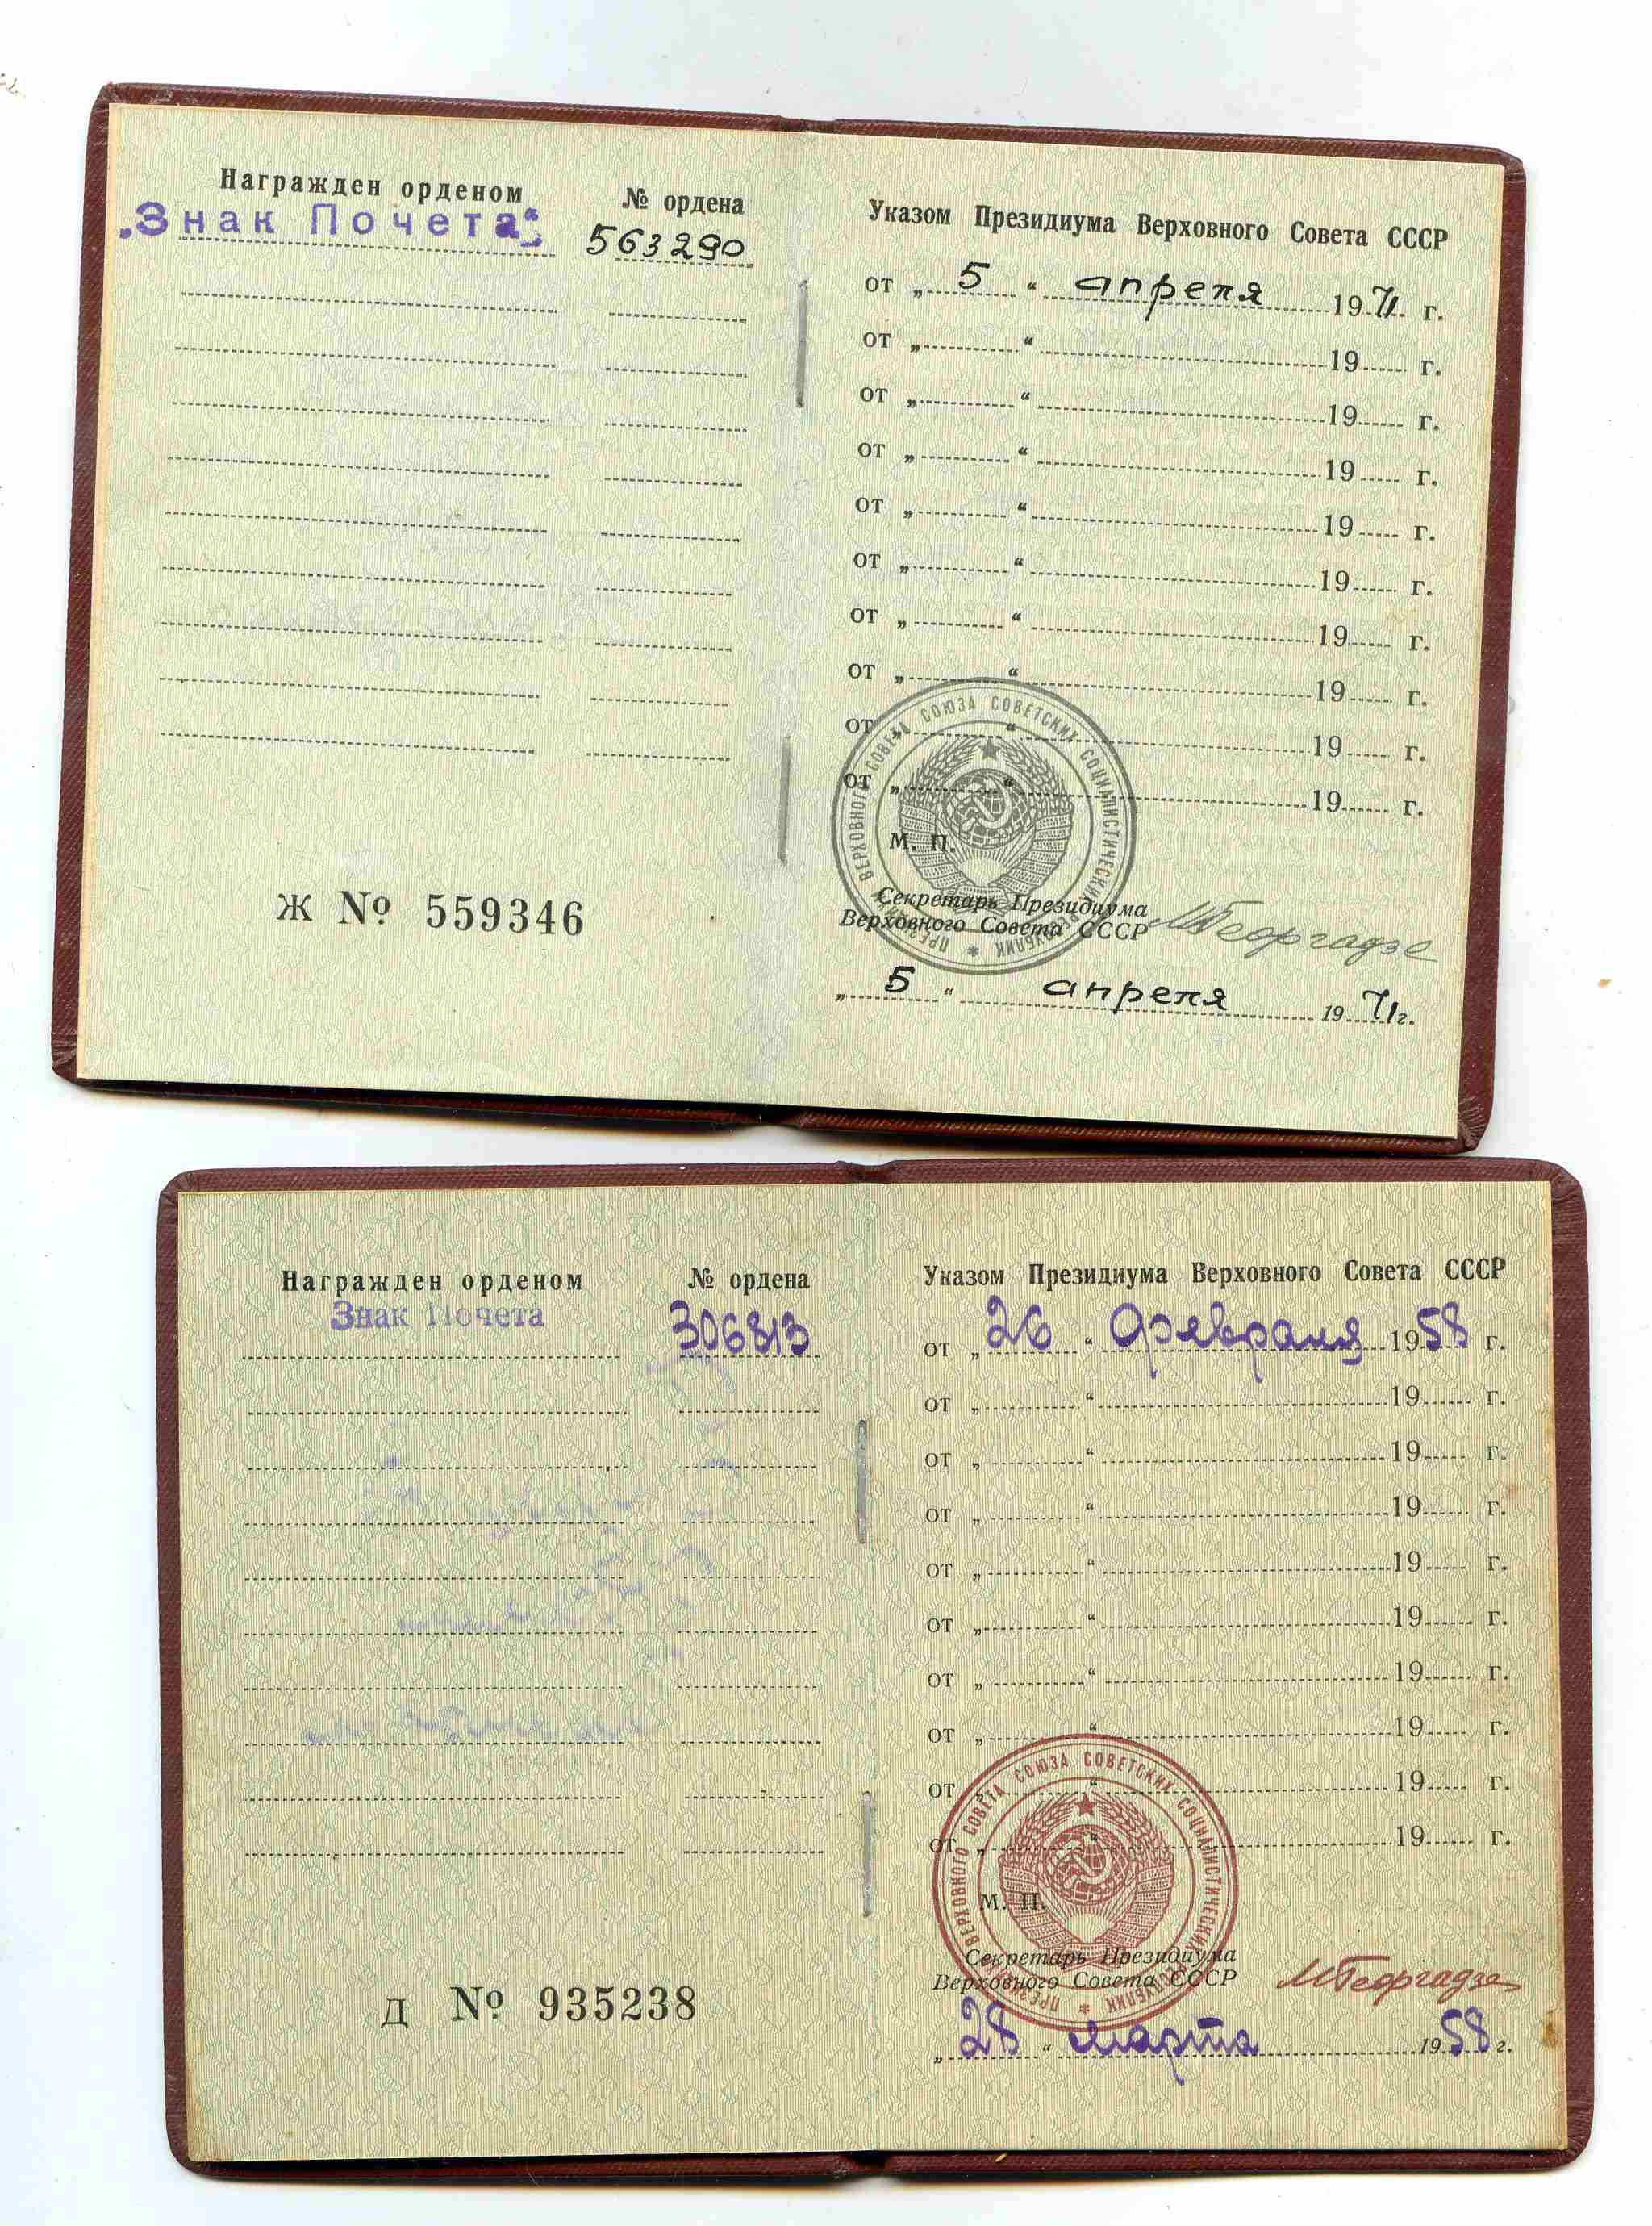 Награжден орденом № ордена
„Знак Почета“ 563290
Ж № 559346
Указом Президиума Верховного Совета СССР
от „ 5 “ апреля 1971 г.
от „ “ 19 г.
от „ “ 19 г.
от „ “ 19 г.
от „ “ 19 г.
от „ “ 19 г.
от „ “ 19 г.
от „ “ 19 г.
от „ “ 19 г.
от „ “ 19 г.
ПРЕЗИДИУМ ВЕРХОВНОГО СОВЕТА СОЮЗА СОВЕТСКИХ СОЦИАЛИСТИЧЕСКИХ РЕСПУБЛИК
М. П.
Секретарь Президиума
Верховного Совета СССР МГеоргадзе
„ 5 “ апреля 1971 г.
Награжден орденом № ордена
Знак Почета 306813
Д № 935238
Указом Президиума Верховного Совета СССР
от „ 26 “ Февраля 1958 г.
от „ “ 19 г.
от „ “ 19 г.
от „ “ 19 г.
от „ “ 19 г.
от „ “ 19 г.
от „ “ 19 г.
от „ “ 19 г.
от „ “ 19 г.
от „ “ 19 г.
ПРЕЗИДИУМ ВЕРХОВНОГО СОВЕТА СОЮЗА СОВЕТСКИХ СОЦИАЛИСТИЧЕСКИХ РЕСПУБЛИК
М. П.
Секретарь Президиума
Верховного Совета СССР МГеоргадзе
„ 28 “ марта 1958 г.